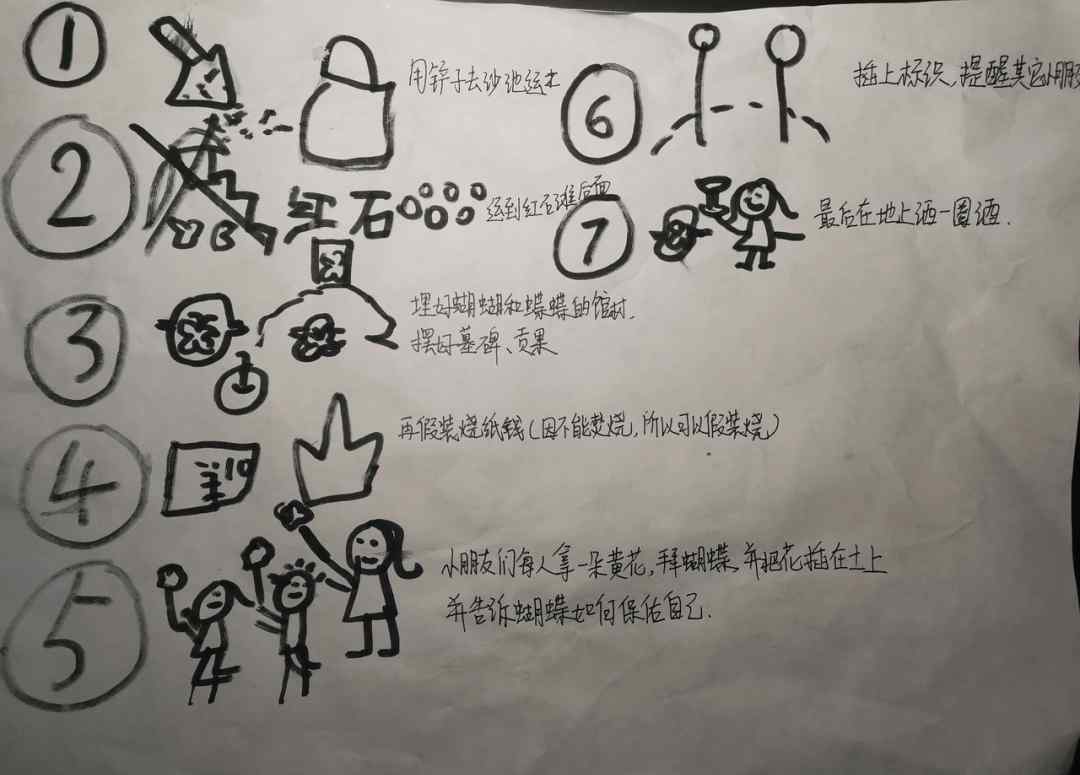 1
用锌子去沙池运土
2
红石
运到红石滩后面
3
埋好蝴蝴和蝶蝶的馆材.
摆好墓碑、贡果
4
10
再假装烧纸钱(因不能焚烧,所以可以假装烧)
5
小朋友们每人拿一朵黄花,拜蝴蝶,并把花插在土上
并告诉蝴蝶如何保佑自己.
6
插上标识,提醒其它小朋友
7
最后在地上洒一圈酒.